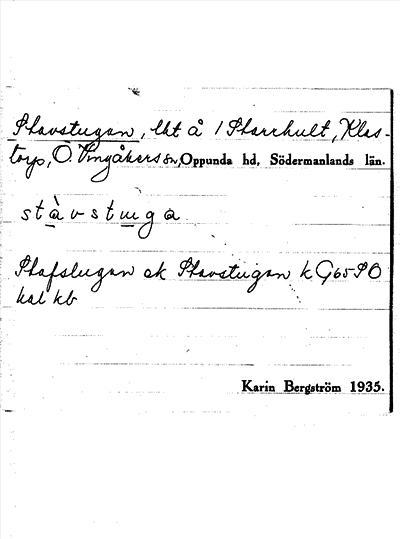 Stavstugan, lht å 1 Starrhult, Klas-
torp, Ö. Vingåkers sn, Oppunda hd, Södermanlands län.
stàvstuga
Stafstugan ak Stavstugan k G65SO
kal kb
Karin Bergström 1935.